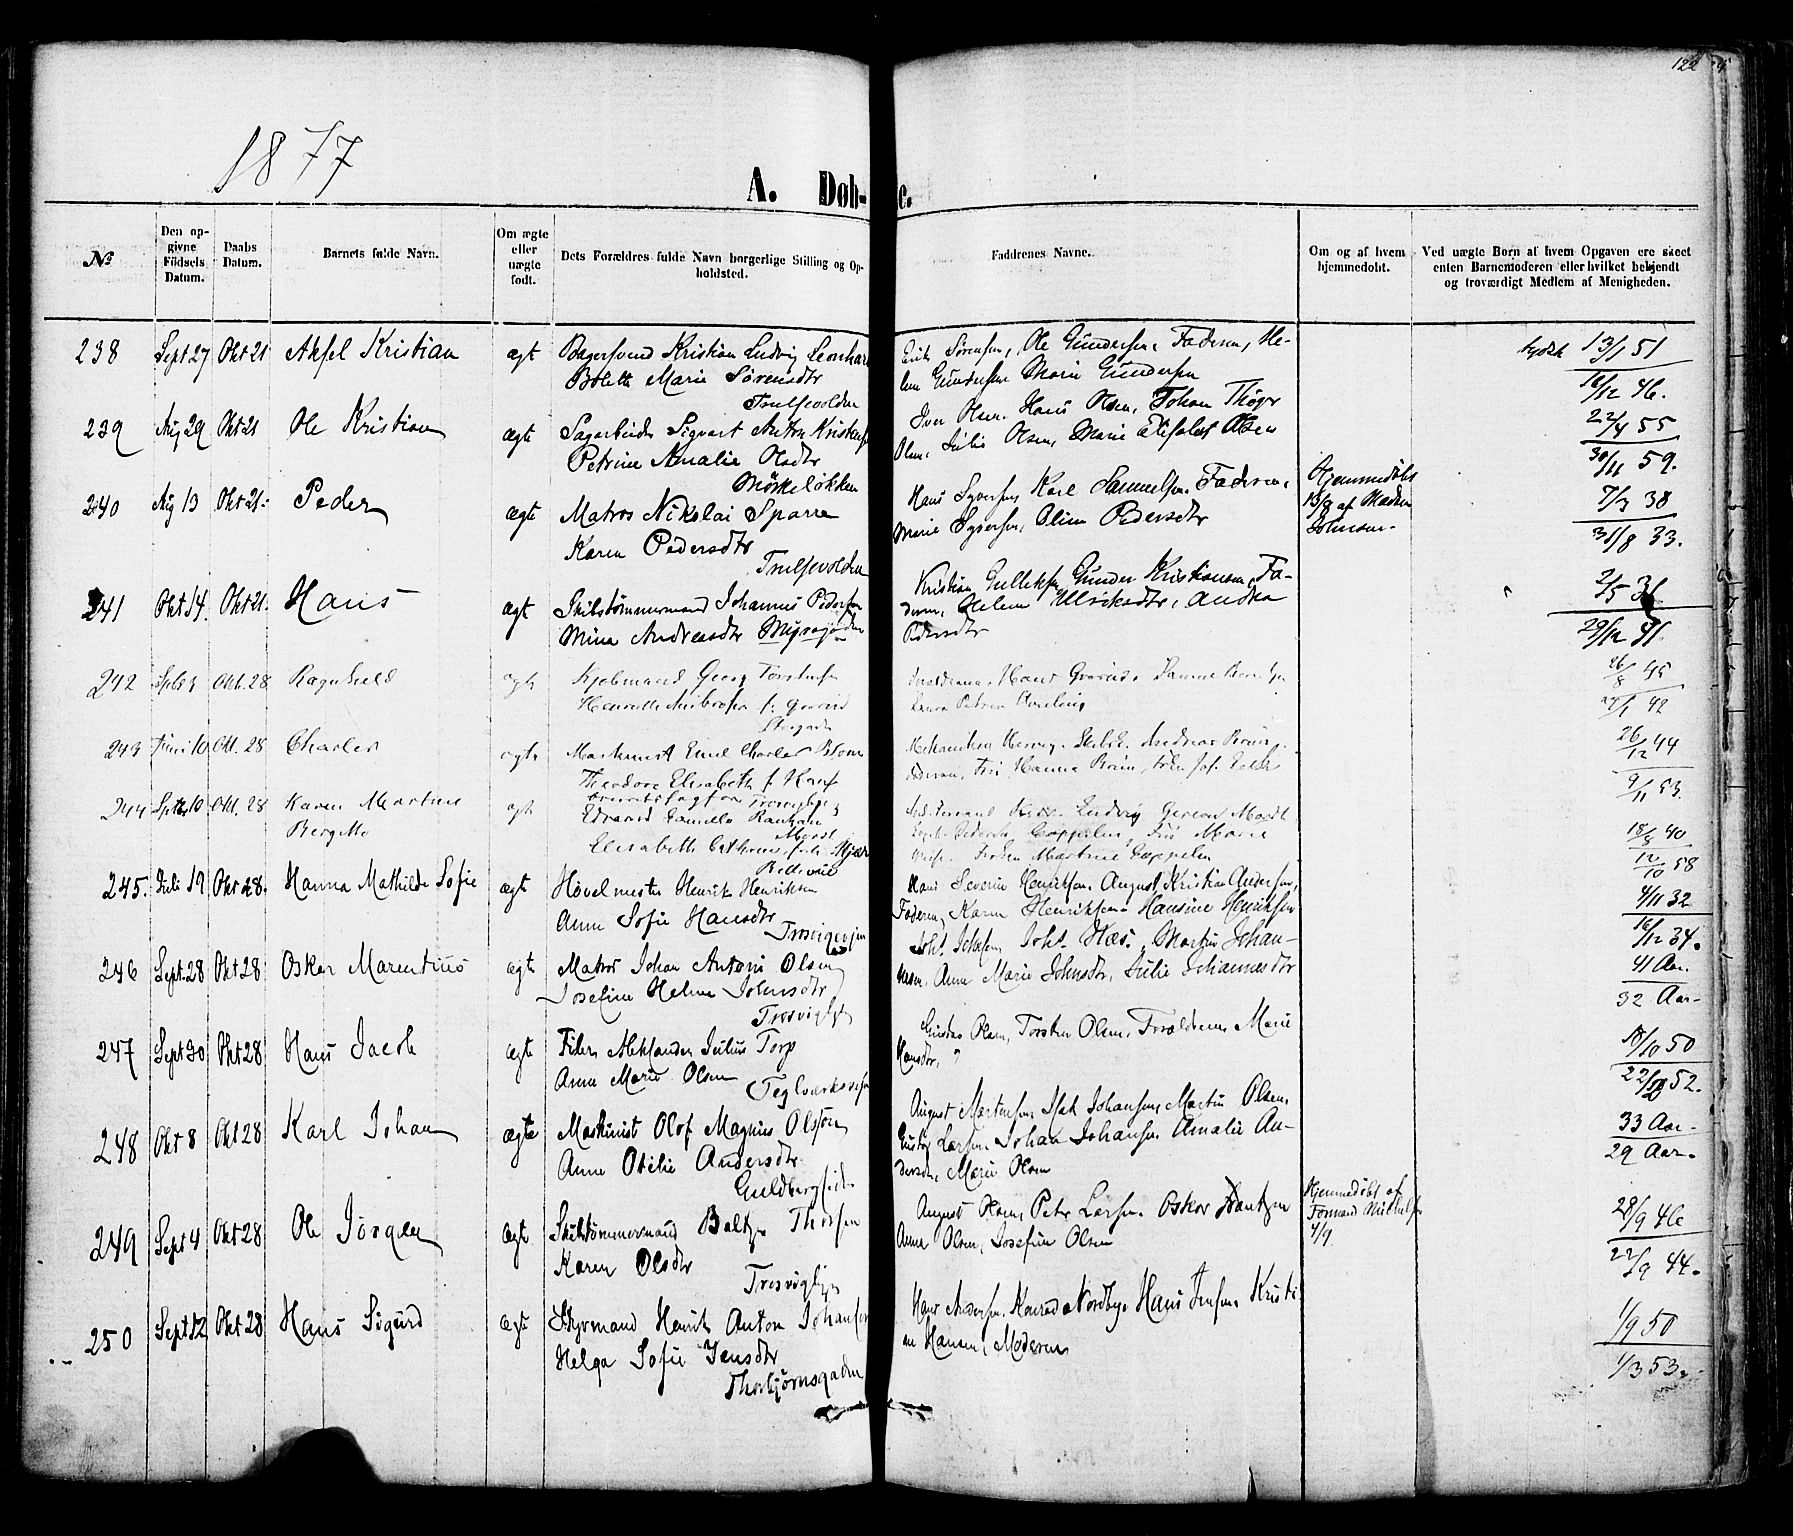 122
1877
A. Döb- e.
№
Den op-
givne
Födsels
Datum.
Daabs
Datum.
Barnets fulde Navn.
Om ægte
eller
uægte
födt.
Dets Forældres fulde Navn borgerlige Stilling og Op-
holdsted.
Faddrenes Navne.
Om og af hvem
hjemmedöbt.
Ved uægte Börn af hvem Opgaven ere skeet
enten Barnemoderen eller hvilket bekjendt
og troværdigt Medlem af Menigheden.
238 Sept 27 Okt 21 Aksel Kristian ægt Bagersvend Kristian Ludvig Leonhar
Bolette Marie Sörensdtr
Trulsevolden
Erik Sörensen, Ole Gundersen, Faderen, He-
len Gundersen Marie Gundersen
tydsk 13/1 51
16/12 46.
239 Aug 29 Okt 21 Ole Kristian ægte Sagarbeider Sigvart Anton Kristens
Petrine Amalie Olsdtr
Mörkelökken
Iver Olsen, Hans Olsen, Johan Thöger
Olsen, Julie Olsen, Marie Elisabet Olsen
22/4 55
30/11 59.
240 Aug 13 Okt 21. Peder ægte Matros Nikolai Sparre
Karen Pedersdtr
Trulsevolden
Hans Syversen, Karl Samuelsen, Faderen,
Marie Syversen, Oline Pedersdtr
Hjemmedöbt
13/8 af Madam
Johnsen.
7/3 38
31/8 33.
241 Okt 14. Okt 21. Hans ægt Skibstömmermand Johannes Peders
Mina Andreasdtr Myragaden
Kristian Gulliksen, Gunder Kristiansen, Fa-
deren, Helene Ulriksdtr, Andrea
Pedersdtr
2/5 31
29/12 41.
242 Okt. 28 Ragnhild ægte Kjöbmand Georg Torstensen
Storgaden
26/8 45
243 Juni 10 Okt. 28 Charles ægte Maskinist Emil Charles
Theodora Elisabeth f.
26/12 44
9/11 53.
244 Septbr 10. Okt. 28 Karen Martine
Bergitte
ægt
Elisabeth Cathrine
Bellevue
Cappelen, Marie
Fröken Martine Cappelen
18/5 40
12/10 58
245. Juli 19 Okt 28. Hanna Mathilde Sofie ægte Hövelmester Henrik Henriksen
Anne Sofie Hansdtr
Hans Severin Henriksen, August Kristian Andersen,
Faderen, Karen Henriksen, Hansine Henriksen
4/11 32
16/12 34.
246 Sept. 28 Okt 28 Oskar Marentius ægte Matros Johan Antoni Olsen
Josefine Helene Johnsdtr
Trosviglyst
Johs. Johnsen, Johs. Næs, Martin Johan-
nesen, Anne Marie Johnsdtr, Julie Johannesdtr
41 Aar.
32 Aar-
247 Sept 30 Okt 28 Hans Jacob ægte Filer Aleksander Julius Torp
Anne Marie Olsen
Teglværksveien
Gustav Olsen, Torsten Olsen, Forældrene, Marie
Hansdtr,
10/10 50
22/10 52.
248 Okt 8 Okt 28 Karl Johan ægte Maskinist Olof Magnus Olsson
Anne Otilie Andersdtr
Guldbergsiden
August Martensen, Isak Johansen, Martin Olsen,
Gustav Larsen, Johan Johansen, Amalie An-
dersdtr, Marie Olsen
33 Aar-
29 Aar.
249 Sept 4 Okt 28 Ole Jörgen ægte Skibstömmermand Baltzer Thorsen
Karen Olsdtr
Trosviglyst
August Olsen, Peter Larsen, Oskar Frantzen
Anna Olsen, Josefine Olsen
Hjemmedöbt af
Formand Mikkelsen
4/9.
28/9 46
22/9 44.
250 Sept 12 Okt 28 Hans Sigurd ægte Styrmand Henrik Anton Johansen
Helga Sofie Jensdtr
Thorbjörnsgaden
Hans Andersen, Konrad Nordbye, Hans Jensen, Kristi-
an Hansen, Moderen
1/9 50
1/3 53.